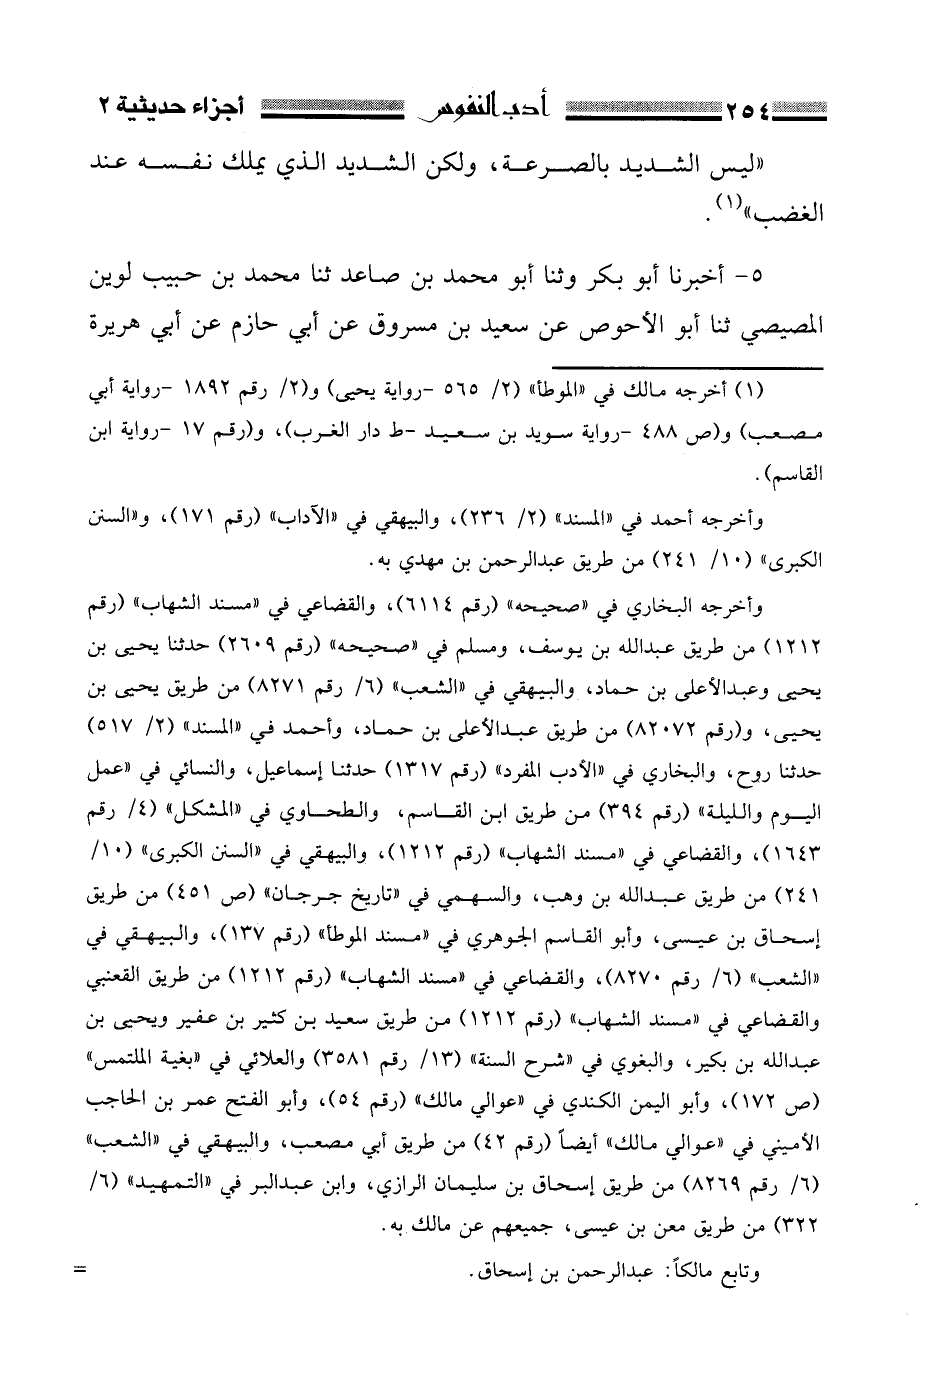 ٢٥٤ أدب النفوس أجزاء حديثية ٢
«ليس الشديد بالصرعة، ولكن الشديد الذي يملك نفسه عند
الغضب»(١).
٥- أخبرنا أبو بكر وثنا أبو محمد بن صاعد ثنا محمد بن حبيب لوين
المصيصي ثنا أبو الأحوص عن سعيد بن مسروق عن أبي حازم عن أبي هريرة
(١) أخرجه مالك في «الموطأ» (٢/ ٥٦٥ -رواية يحيى) و(٢/ رقم ١٨٩٢ -رواية أبي
مصعب) و(ص ٤٨٨ -رواية سويد بن سعيد -ط دار الغرب)، و(رقم ١٧ -رواية ابن
القاسم).
وأخرجه أحمد في «المسند» (٢/ ٢٣٦)، والبيهقي في «الآداب» (رقم ١٧١)، و«السنن
الكبرى» (١٠/ ٢٤١) من طريق عبدالرحمن بن مهدي به.
وأخرجه البخاري في «صحيحه» (رقم ٦١١٤)، والقضاعي في «مسند الشهاب» (رقم
١٢١٢) من طريق عبدالله بن يوسف، ومسلم في «صحيحه» (رقم ٢٦٠٩) حدثنا يحيى بن
يحيى وعبدالأعلى بن حماد، والبيهقي في «الشعب» (٦/ رقم ٨٢٧١) من طريق يحيى بن
يحيى، و(رقم ٨٢٠٧٢) من طريق عبدالأعلى بن حماد، وأحمد في «المسند» (٢/ ٥١٧)
حدثنا روح، والبخاري في «الأدب المفرد» (رقم ١٣١٧) حدثنا إسماعيل، والنسائي في «عمل
اليوم والليلة» (رقم ٣٩٤) من طريق ابن القاسم، والطحاوي في «المشكل» (٤/ رقم
١٦٤٣)، والقضاعي في «مسند الشهاب» (رقم ١٢١٢)، والبيهقي في «السنن الكبرى» (١٠/
٢٤١) من طريق عبدالله بن وهب، والسهمي في «تاريخ جرجان» (ص ٤٥١) من طريق
إسحاق بن عيسى، وأبو القاسم الجوهري في «مسند الموطأ» (رقم ١٣٧)، والبيهقي في
«الشعب» (٦/ رقم ٨٢٧٠)، والقضاعي في «مسند الشهاب» (رقم ١٢١٢) من طريق القعنبي
والقضاعي في «مسند الشهاب» (رقم ١٢١٢) من طريق سعيد بن كثير بن عفير ويحيى بن
عبدالله بن بكير، والبغوي في «شرح السنة» (١٣/ رقم ٣٥٨١) والعلائي في «بغية الملتمس»
(ص ١٧٢)، وأبو اليمن الكندي في «عوالي مالك» (رقم ٥٤)، وأبو الفتح عمر بن الحاجب
الأميني في «عوالي مالك» أيضاً (رقم ٤٢) من طريق أبي مصعب، والبيهقي في «الشعب»
(٦/ رقم ٨٢٦٩) من طريق إسحاق بن سليمان الرازي، وابن عبدالبر في «التمهيد» (٦/
٣٢٢) من طريق معن بن عيسى، جميعهم عن مالك به.
وتابع مالكاً: عبدالرحمن بن إسحاق. =